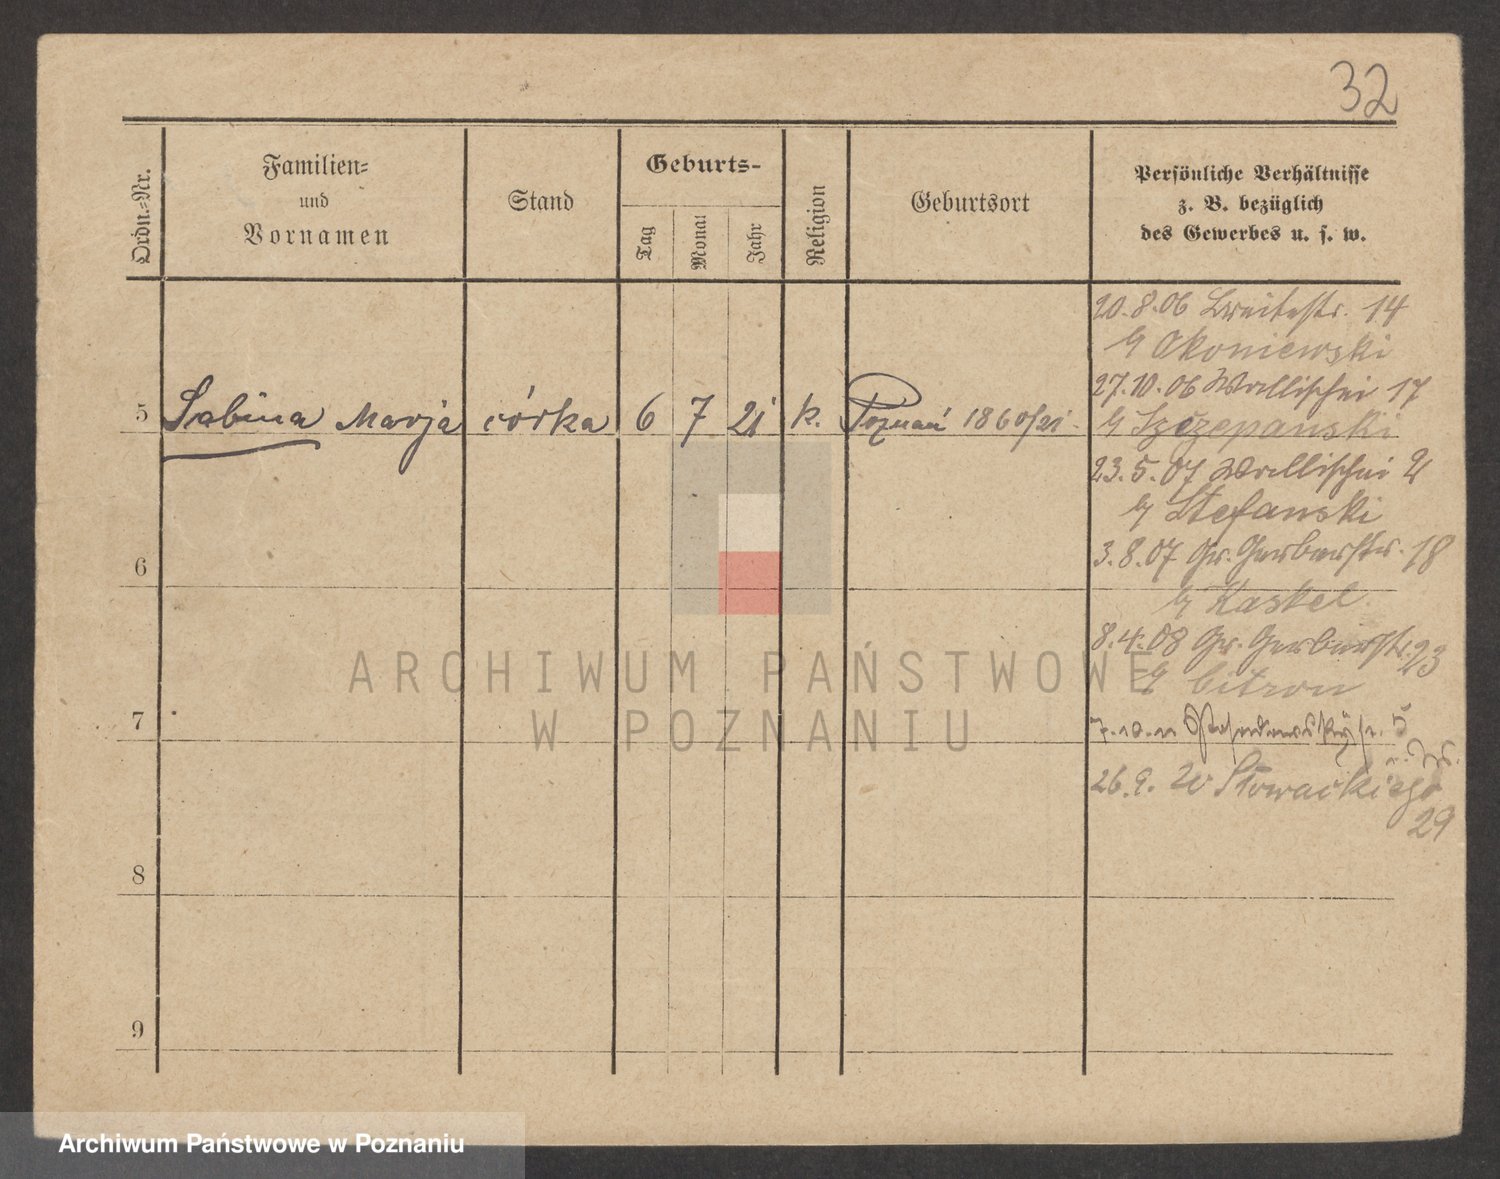 32
Ordn.-Nr.
Familien-
und
Vornamen
Stand
Geburts-
Tag
Monat
Jahr
Religion
Geburtsort
Persönliche Verhältnisse
z. B. bezüglich
des Gewerbes u. s. w.
20.8.06 Breitestr. 14
b/ Okoniewski
27.10.06 Wallischei 17
5 Sabina Marja córka 6 7 21 k. Poznań 1860/21
b/ Szczepanski
23.5.07 Wallischei
b/ Stefanski
3.8.07 Gr. Gerberstr. 18
6
b/ Kaskel
8.4.08 Gr. Gerberstr. 23
b/ Citron
7
5
26.9. Słowackiego
29
8
9
ARCHIWUM PAŃSTWOWE
W POZNANIU
Archiwum Państwowe w Poznaniu